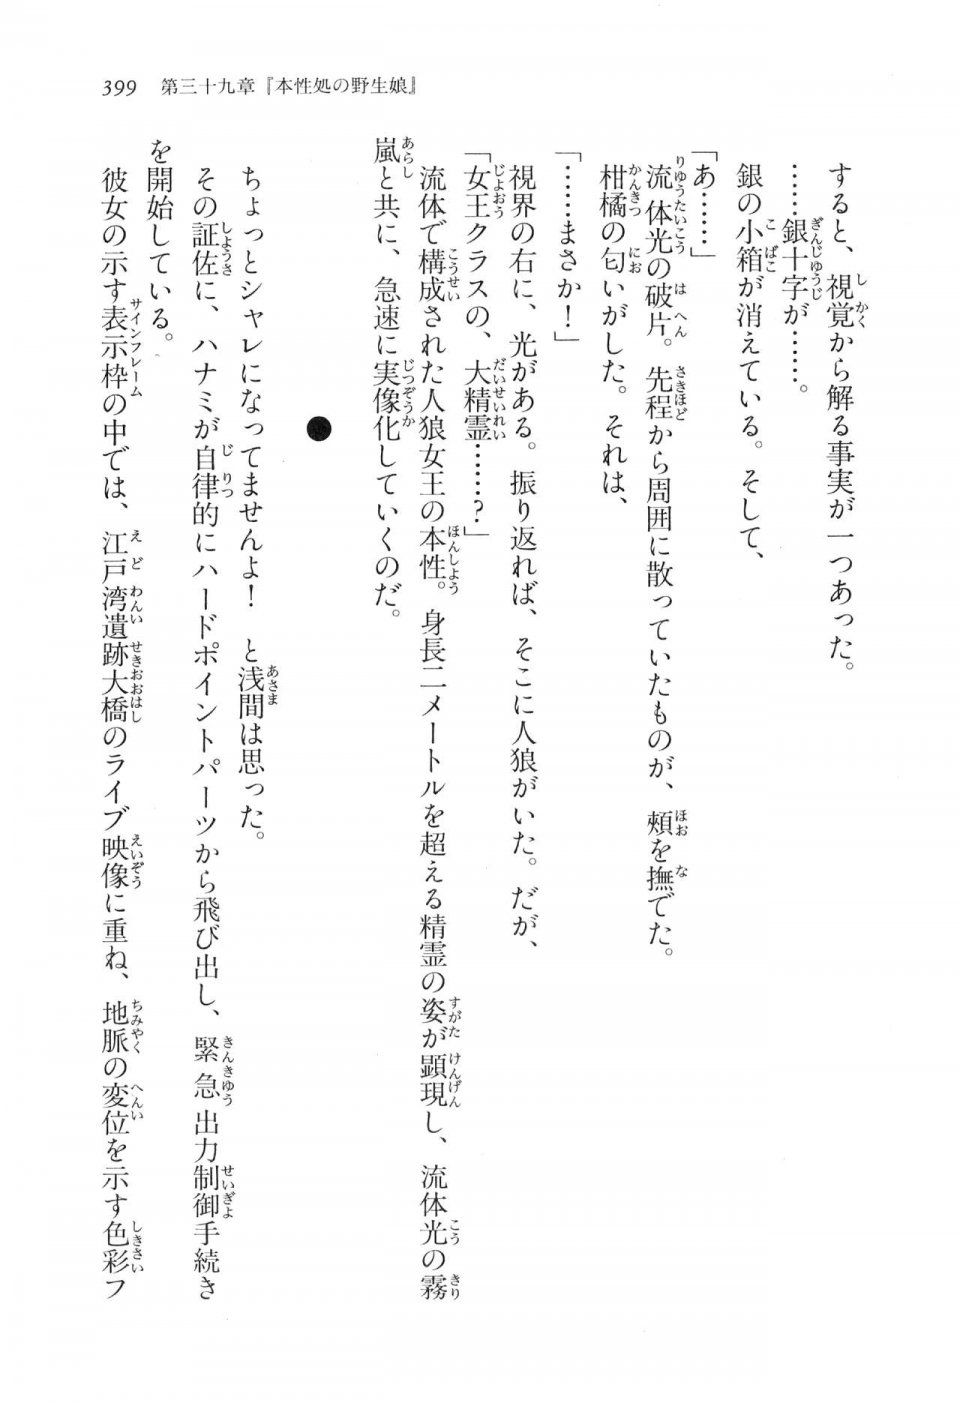 399　第三十九章『本性処の野生娘』
すると、視覚から解る事実が一つあった。
……銀十字が……。
銀の小箱が消えている。そして、
「あ……」
流体光の破片。先程から周囲に散っていたものが、頬を撫でた。
柑橘の匂いがした。それは、
「……まさか！」
視界の右に、光がある。振り返れば、そこに人狼がいた。だが、
「女王クラスの、大精霊……？」
流体で構成された人狼女王の本性。身長二メートルを超える精霊の姿が顕現し、流体光の霧
嵐と共に、急速に実像化していくのだ。
●
ちょっとシャレになってませんよ！　と浅間は思った。
その証佐に、ハナミが自律的にハードポイントパーツから飛び出し、緊急出力制御手続き
を開始している。
彼女の示す表示枠の中では、江戸湾遺跡大橋のライブ映像に重ね、地脈の変位を示す色彩フ